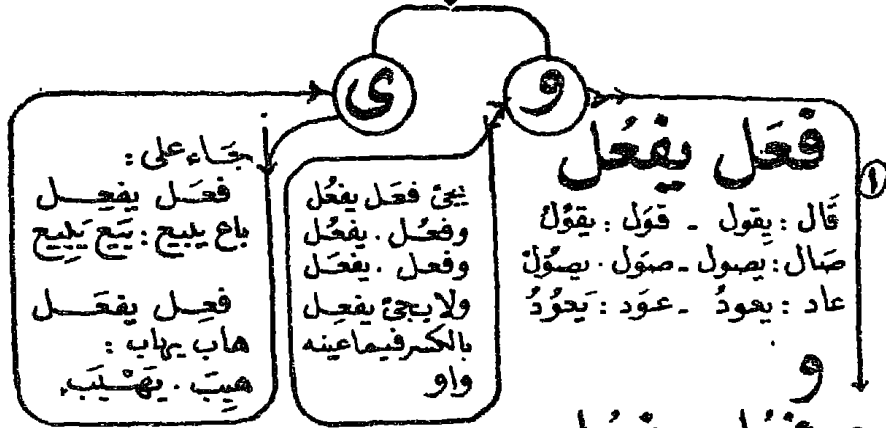 و
ى
①
فَعَل يفْعُل
قَال : يقول - قَوَل : يقوُلُ
صَال : يصول - صَوَل . يصوُلْ
عاد : يعودُ - عَوَد : يَعوُدُ
و
يجئ فعَل يفعُل
وفعُل . يفعُل
وفعل . يفعَل
ولا يجئ يفعِل
بالكسر فيما عينه
واو
جَاء على :
فعَل يفعِل
باع يبيع : بَيَع يَبيِع
فعِل يفعَل
هاب يهاب :
هيِبَ . يَهْيَب